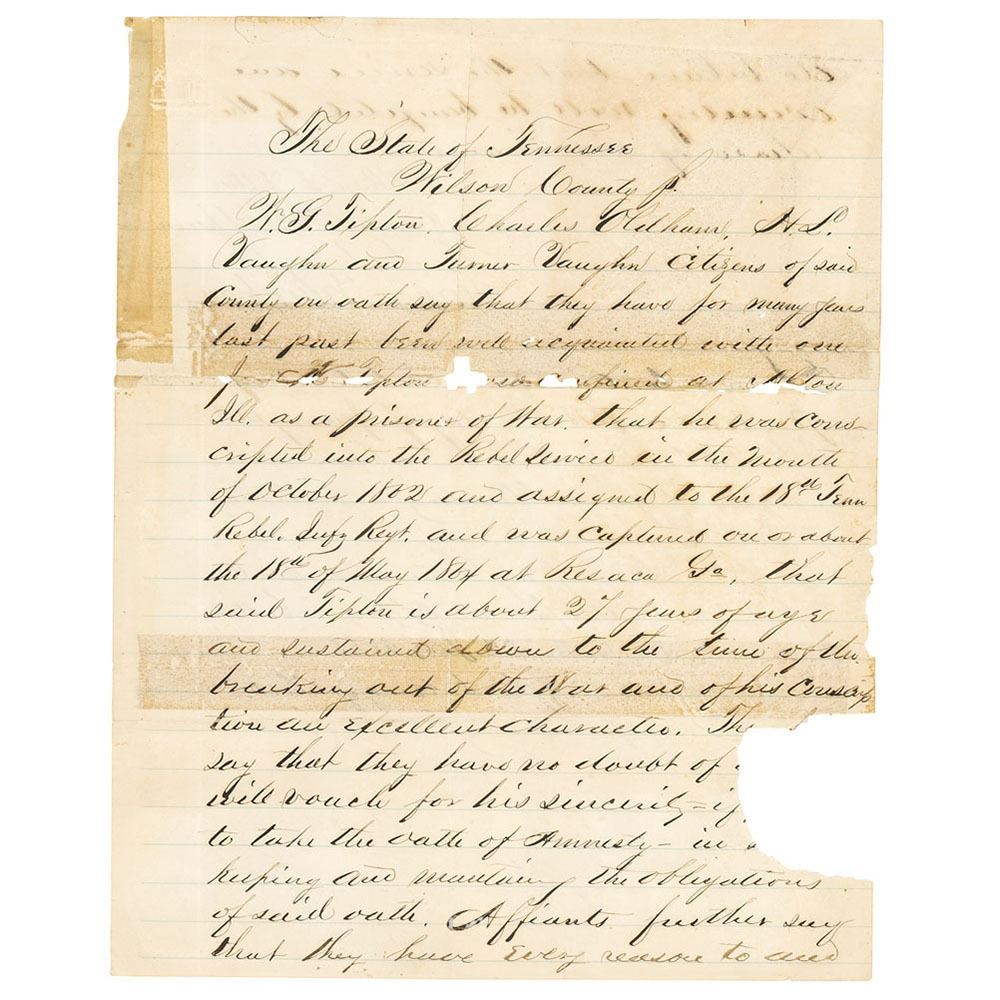 The State of Tennessee
Wilson County
W. G. Tipton, Charles Oldham, H. L.
Vaughn and Turner Vaughn Citizens of said
County on oath say that they have for many years
last past been well acquainted with one
J. Tipton confined at Alton
Ill. as a prisoner of War. that he was cons-
cripted into the Rebel Service in the Month
of October 1862 and assigned to the 18th Tenn
Rebel. Infy Regt. and was captured on or about
the 18th of May 1864 at Resaca Ga, that
said Tipton is about 27 years of age
and sustained down to the time of the
breaking out of the War and of his conscrip
tion an excellent character. The
say that they have no doubt of
will vouch for his sincerity - if
to take the oath of Amnesty - in
keeping and maintaing the obligations
of said oath. Affiants further say
that they have every reason to and